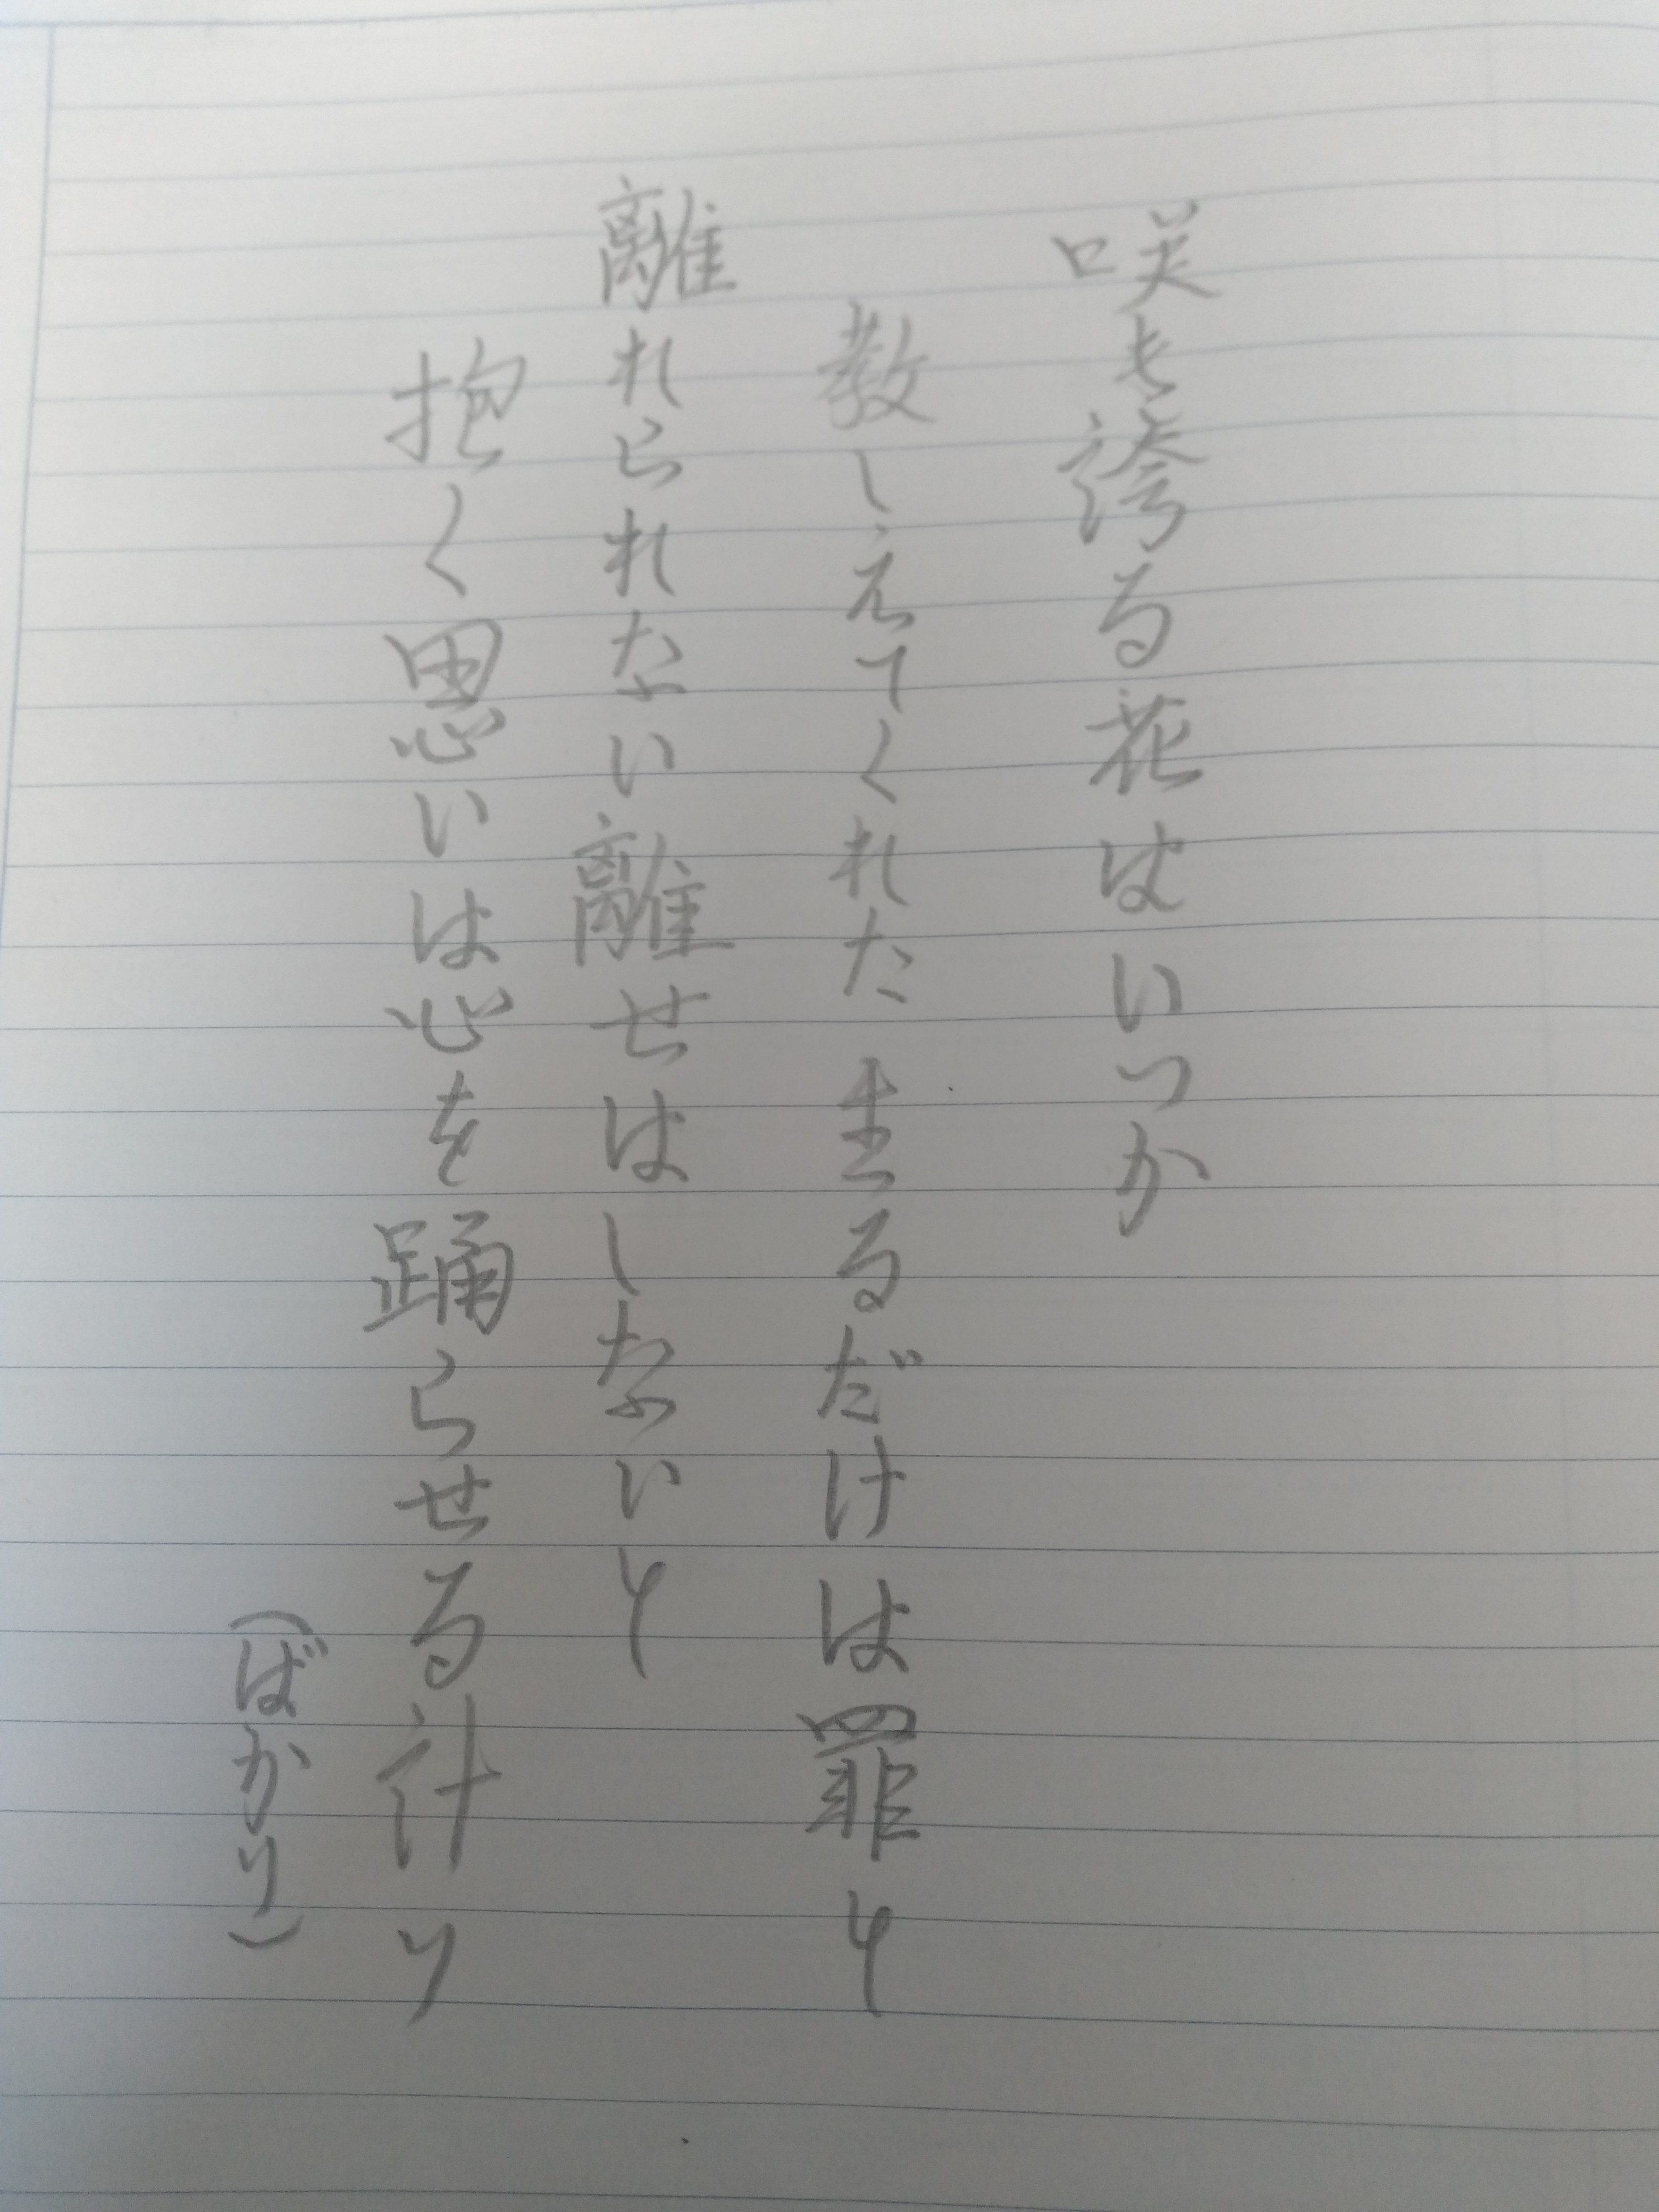 咲き誇る花はいつか
教しえてくれた 生るだけは罪と
離れられない離せはしないと
抱く思いは心を踊らせる計り
(ばかり)